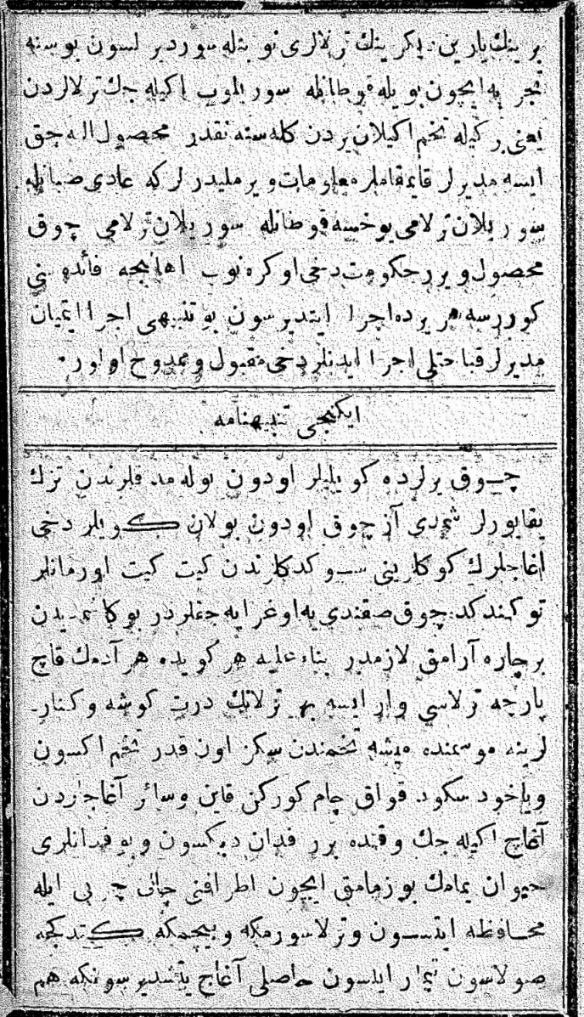 بر ينك يارين ديكر ينك ترلالری نو بتله سوردير لسون بو سنه
تجر به ايچون بو يله قوطانله سور يلوب اكيله جك ترلالردن
يعنی بر كيله تخم اكيلان يردن كله سنه نقدر محصول اله جق
ايسه مديرلر قايمقاملر معلومات و ير مليدر لر كه عادی صبانله
سور يلان ترلامی يوخسه قوطانله سور يلان ترلامی چوق
محصول و يرر حكومت دخی اوكره نوب اهاليجه فائده سنی
كوررسه هر يرده اجرا ايتديرسون بو تنبيهی اجرا ايتميان
مديرلر قباحتلی اجرا ايدنلر دخی مقبول و ممدوح اولور
ايكنجی تنبيهنامه
چوق يرلرده كويليلر اودون بوله مدقلرندن تزك
يقايورلر شمدی آز چوق اودون بولان كويلر دخی
اغاجلرك كوكلرينی سوكدكلرندن كيت كيت اورمانلر
توكندكجه چوق صقندی يه اوغرايه جقلردر بوكا شمديدن
بر چاره آرامق لازمدر بناء عليه هر كويده هر آدمك قاچ
پارچه ترلاسی وار ايسه بهر ترلانك درت كوشه و كنار
لرينه موسمنده ميشه تخمندن سكز اون قدر تخم اكسون
وياخود سكود قواق چام كوركن قاين وسائر آغاجلردن
آغاج اكيله جك وقتده برر فدان ديكسون و بو فدانلری
حيوان يمامك بوزمامق ايچون اطرافنی چالی چر پی ايله
محافظه ايتسون و ترلا سورمكه و بيچمكه كتدكجه
صولاسون تيمار ايلسون حاصلی آغاج يتشديرسونكه هم